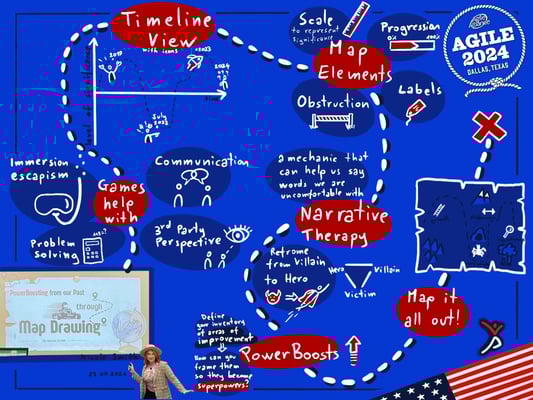 Timeline
View
with icons
2019
2023
2024
July
2022
time
Scale
to represent
significance
Progression
0%
100%
Map
Elements
Obstruction
Labels
AGILE
2024
DALLAS, TEXAS
Immersion
escapism
Communication
Games
help
with
Problem
solving
3rd Party
Perspective
a mechanic that
can help us say
words we are
uncomfortable with
Narrative
Therapy
Reframe
from Villain
to Hero
Hero
Villain
Victim
Map it
all out!
PowerBoosting from our Past
through
Map Drawing
Define
your inventory
of areas of
improvement
&
How can you
frame them
so they become
superpowers?
PowerBoosts
Nicole Smith
23.07.2024